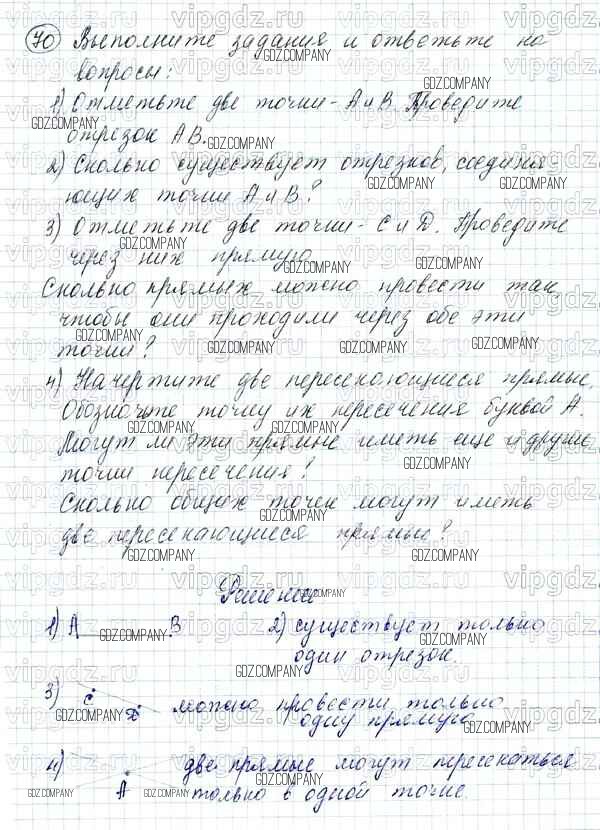 70 Выполните задания и ответьте на
вопросы:
1) Отметьте две точки - А и В. Проведите
отрезок АВ.
2) Сколько существует отрезков, соединя
ющих точки А и В?
3) Отметьте две точки - С и D. Проведите
через них прямую
Сколько прямых можно провести так
чтобы они проходили через обе эти
точки?
4) Начертите две пересекающиеся прямые.
Обозначьте точку их пересечения буквой А.
Могут ли эти прямые иметь еще и другие
точки пересечения?
Сколько общих точек могут иметь
две пересекающиеся прямые?
Решение
1) А В 2) существует только
один отрезок.
3) С D можно провести только
одну прямую
4) А две прямые могут пересекаться
только в одной точке.